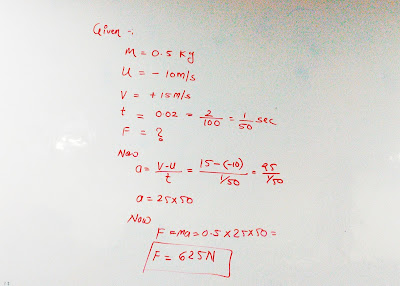 Given -:
M = 0.5 Kg
U = - 10m/s
V = +15m/s
t = 0.02 = 2/100 = 1/50 sec
F = ?
Now
a = V-U/t = 15-(-10)/1/50 = 25/1/50
a = 25x50
Now
F = ma = 0.5 x 25 x 50 =
F = 625N